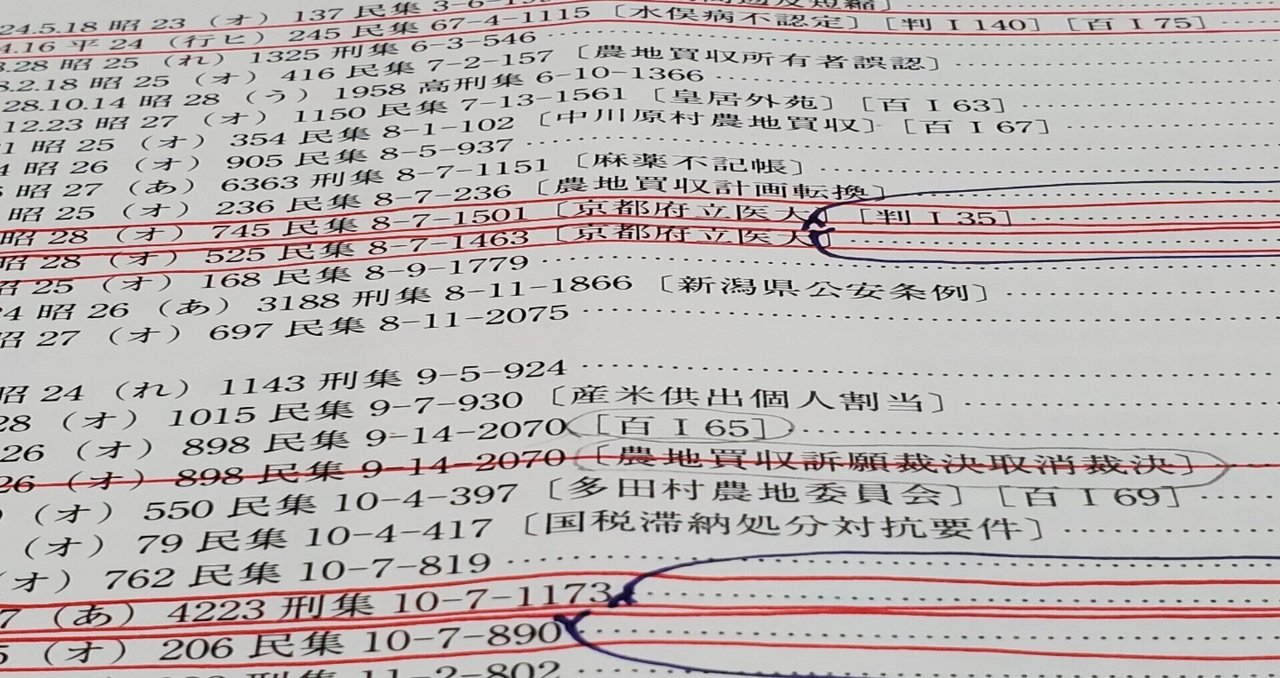 24.5.18 昭 23 （オ）137 民集 3-6-
4.16 平 24 （行ヒ）245 民集 67-4-1115〔水俣病不認定〕［判Ⅰ140］［百Ⅰ75］
3.28 昭 25 （れ）1325 刑集 6-3-546
8.2.18 昭 25 （オ）416 民集 7-2-157〔農地買収所有者誤認〕
28.10.14 昭 28 （う）1958 高刑集 6-10-1366
12.23 昭 27 （オ）1150 民集 7-13-1561〔皇居外苑〕［百Ⅰ63］
1 昭 25 （オ）354 民集 8-1-102〔中川原村農地買収〕［百Ⅰ67］
4 昭 26 （オ）905 民集 8-5-937
昭 27 （あ）6363 刑集 8-7-1151〔麻薬不記帳〕
昭 25 （オ）236 民集 8-7-236〔農地買収計画転換〕
昭 28 （オ）745 民集 8-7-1501〔京都府立医大〕［判Ⅰ35］
昭 28 （オ）525 民集 8-7-1463〔京都府立医大〕
昭 25 （オ）168 民集 8-9-1779
24 昭 26 （あ）3188 刑集 8-11-1866〔新潟県公安条例〕
昭 27 （オ）697 民集 8-11-2075
昭 24 （れ）1143 刑集 9-5-924
28 （オ）1015 民集 9-7-930〔産米供出個人割当〕
26 （オ）898 民集 9-14-2070［百Ⅰ65］
26 （オ）898 民集 9-14-2070〔農地買収訴願裁決取消裁決〕
（オ）550 民集 10-4-397〔多田村農地委員会〕［百Ⅰ69］
（オ）79 民集 10-4-417〔国税滞納処分対抗要件〕
（オ）762 民集 10-7-819
7 （あ）4223 刑集 10-7-1173
5 （オ）206 民集 10-7-890
刑集 11-2-802